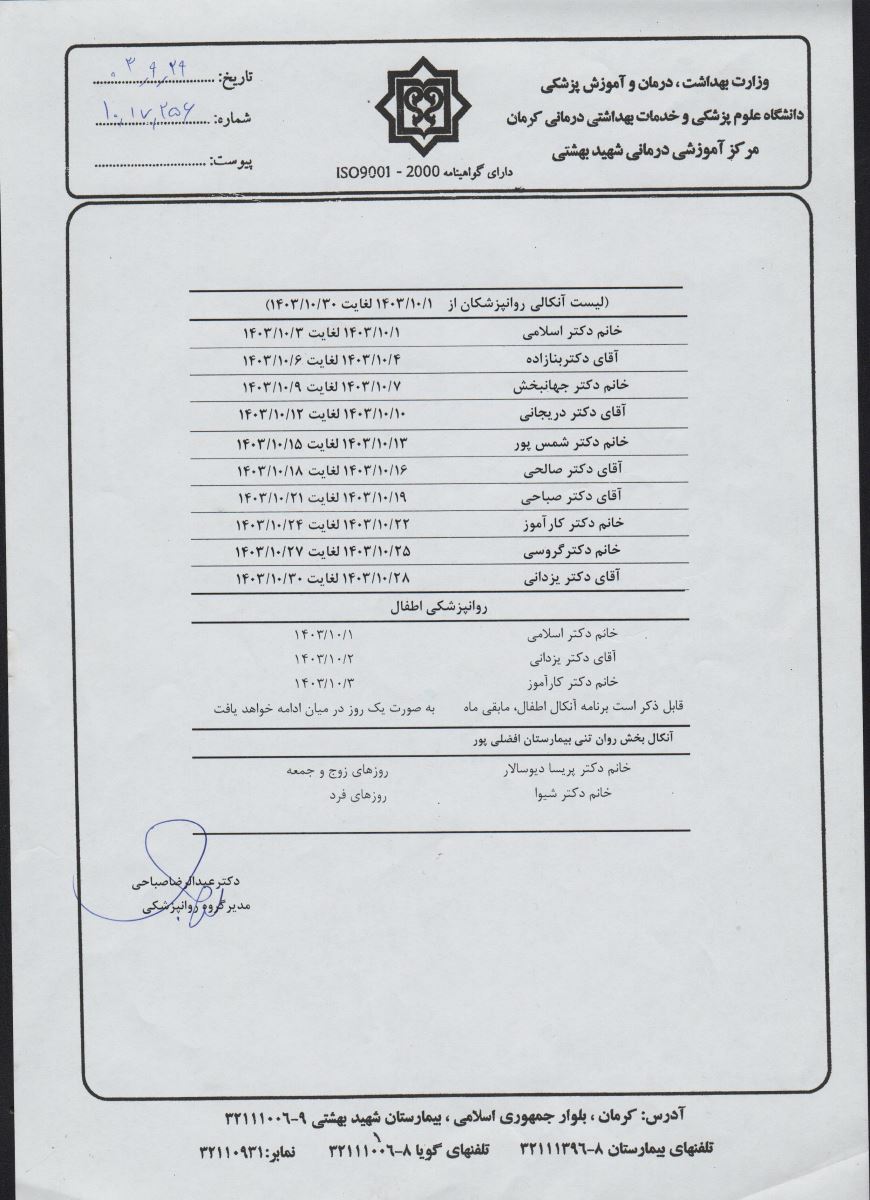 وزارت بهداشت، درمان و آموزش پزشکی
دانشگاه علوم پزشکی و خدمات بهداشتی درمانی کرمان
مرکز آموزشی درمانی شهید بهشتی
دارای گواهینامه ISO9001 - 2000
تاریخ: ۰۳,۹,۲۹
شماره: ۱۰,۱۷,۲۵۶
پیوست:
(لیست آنکالی روانپزشکان از ۱۴۰۳/۱۰/۱ لغایت ۱۴۰۳/۱۰/۳۰)
خانم دکتر اسلامی ۱۴۰۳/۱۰/۱ لغایت ۱۴۰۳/۱۰/۳
آقای دکتربنازاده ۱۴۰۳/۱۰/۴ لغایت ۱۴۰۳/۱۰/۶
خانم دکتر جهانبخش ۱۴۰۳/۱۰/۷ لغایت ۱۴۰۳/۱۰/۹
آقای دکتر دریجانی ۱۴۰۳/۱۰/۱۰ لغایت ۱۴۰۳/۱۰/۱۲
خانم دکتر شمس پور ۱۴۰۳/۱۰/۱۳ لغایت ۱۴۰۳/۱۰/۱۵
آقای دکتر صالحی ۱۴۰۳/۱۰/۱۶ لغایت ۱۴۰۳/۱۰/۱۸
آقای دکتر صباحی ۱۴۰۳/۱۰/۱۹ لغایت ۱۴۰۳/۱۰/۲۱
خانم دکتر کارآموز ۱۴۰۳/۱۰/۲۲ لغایت ۱۴۰۳/۱۰/۲۴
خانم دکترگروسی ۱۴۰۳/۱۰/۲۵ لغایت ۱۴۰۳/۱۰/۲۷
آقای دکتر یزدانی ۱۴۰۳/۱۰/۲۸ لغایت ۱۴۰۳/۱۰/۳۰
روانپزشکی اطفال
خانم دکتر اسلامی ۱۴۰۳/۱۰/۱
آقای دکتر یزدانی ۱۴۰۳/۱۰/۲
خانم دکتر کارآموز ۱۴۰۳/۱۰/۳
قابل ذکر است برنامه آنکال اطفال، مابقی ماه به صورت یک روز در میان ادامه خواهد یافت
آنکال بخش روان تنی بیمارستان افضلی پور
خانم دکتر پریسا دیوسالار روزهای زوج و جمعه
خانم دکتر شیوا روزهای فرد
دکترعبدالرضاصباحی
مدیرگروه روانپزشکی
آدرس: کرمان، بلوار جمهوری اسلامی، بیمارستان شهید بهشتی ۹-۳۲۱۱۱۰۰۶
تلفنهای بیمارستان ۸-۳۲۱۱۱۳۹۶ تلفنهای گویا ۸-۳۲۱۱۱۰۰۶ نمابر:۳۲۱۱۰۹۳۱